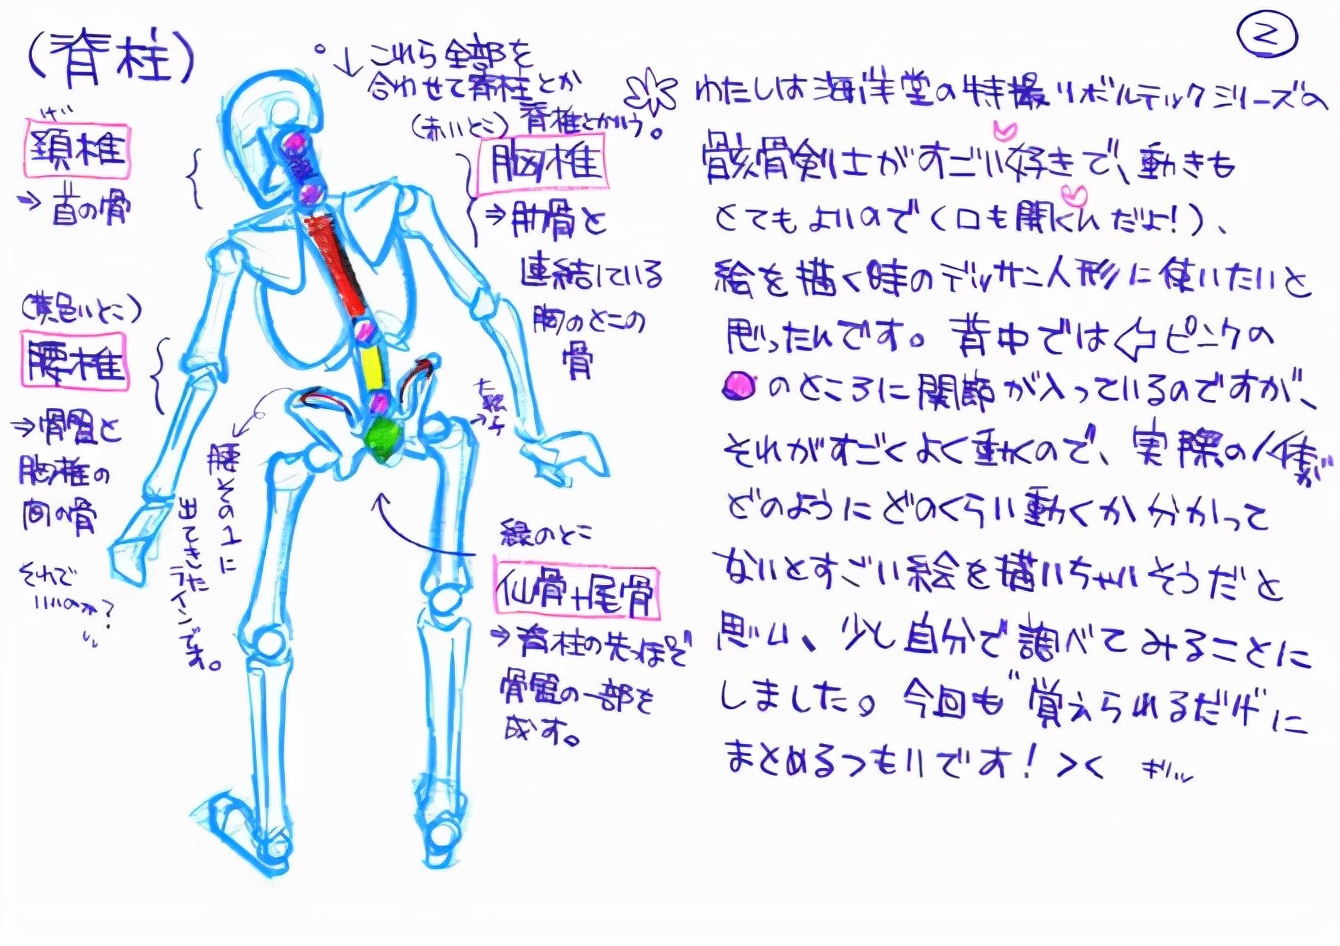 ②
(脊柱)
。↓これら全部を
合わせて脊柱とか
脊椎とかいう。
頚椎
⇒首の骨
(赤いとこ)
胸椎
⇒肋骨と
連結している
胸のとこの
骨
(黄色いとこ)
腰椎
⇒骨盤と
胸椎の
間の骨
それで
いいのか?
腰その1に
出てきた
ラインです。
緑のとこ
仙骨+尾骨
⇒脊柱の先っぽで
骨盤の一部を
成す。
わたしは海洋堂の特撮リボルテックシリーズの
骸骨剣士がすごい好きで、動きも
とてもよいので(口も開くんだよ!)、
絵を描く時のデッサン人形に使いたいと
思ったんです。背中では⇦ピンクの
●のところに関節が入っているのですが、
それがすごくよく動くので、実際の人体が
どのようにどのくらい動くか分かって
ないとすごい絵を描いちゃいそうだと
思い、少し自分で調べてみることに
しました。今回も"覚えられるだけ"に
まとめるつもりです!><